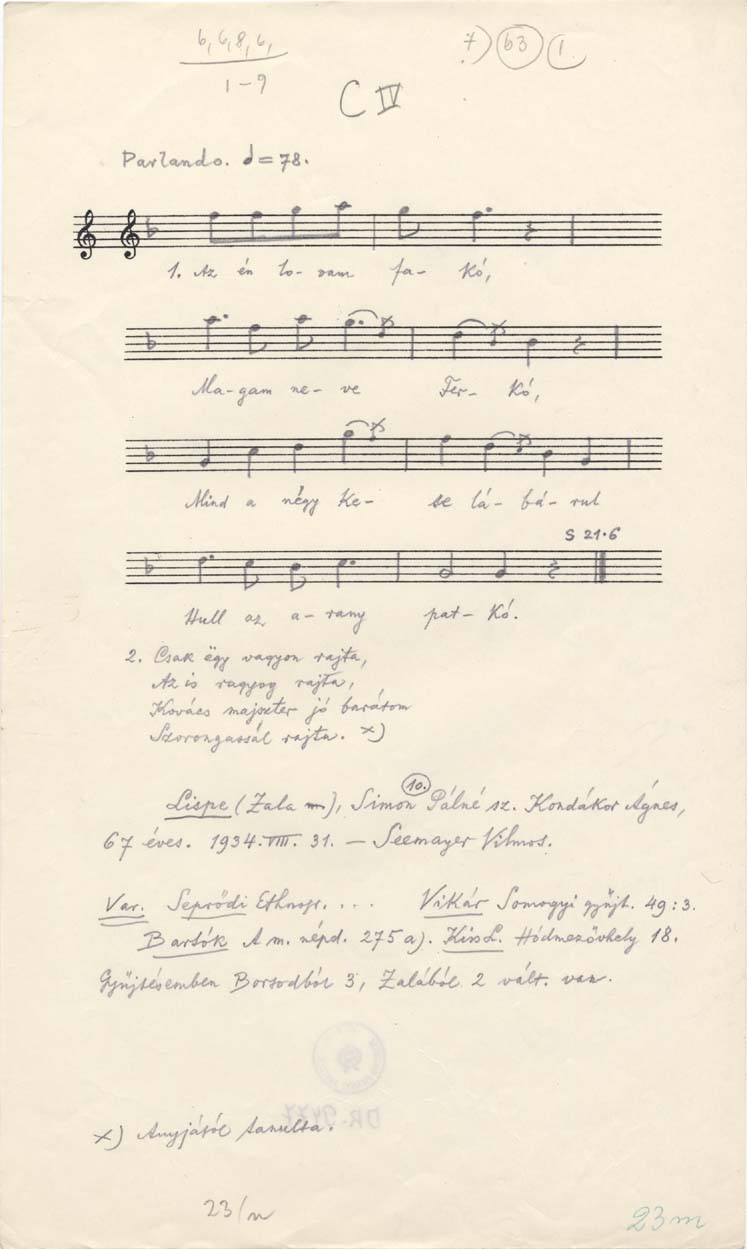 6, 6, 8, 6,
1-9
7) b3 1
C IV
Parlando. = 78.
1. Az én lo- vam fa- kó,
Ma-gam ne- ve Fer- kó,
Mind a négy ke- se lá- bá- rul
S 21.6
Hull az a- rany pat- kó.
2. Csak ëgy vagyon rajta,
Az is ragyog rajta,
Kovács majszter jó barátom
Szorongassál rajta. x)
10.
Lispe (Zala m), Simon Pálné sz. Kondákor Ágnes,
67 éves. 1934. VIII. 31. — Seemayer Vilmos.
Var. Sepródi Ethnogr. ... Vikár Somogyi gyűjt. 49:3.
Bartók A m. népd. 275 a). Kiss L. Hódmezővhely 18.
Gyűjtésemben Borsodból 3, Zalából 2 vált. van.
x) Anyjától tanulta.
23/n
23m